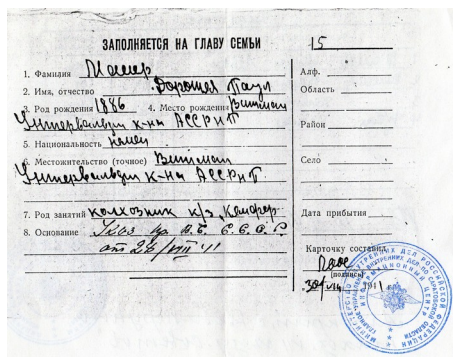 ЗАПОЛНЯЕТСЯ НА ГЛАВУ СЕМЬИ
15
1. Фамилия
2. Имя, отчество Доротея Паул
3. Год рождения 1886 4. Место рождения Витман
Унтервальден к-на АССРНП
5. Национальность немец
6. Местожительство (точное) Витман
Унтервальден к-на АССРНП
7. Род занятий колхозник к/з
8. Основание Указ пр. В.С. С.С.С.Р.
от 28/VIII 41
Алф.
Область
Район
Село
Дата прибытия
Карточку составил
(подпись)
1941 г.